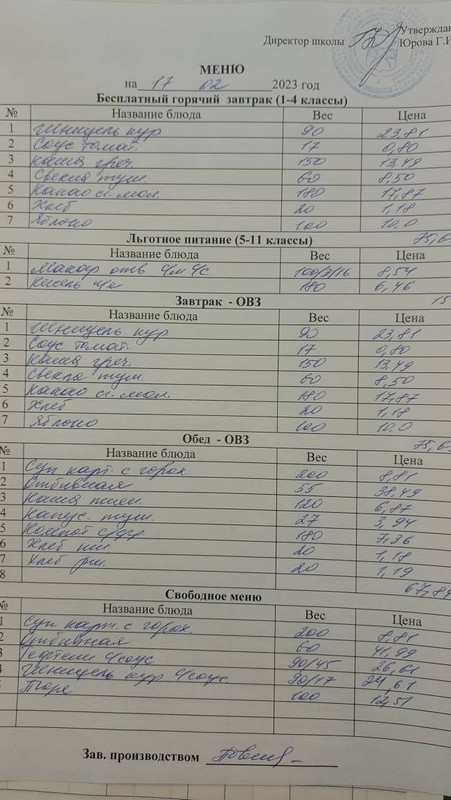 Утверждаю
Директор школы Юрова Г.И
МЕНЮ
на 17 02 2023 год
Бесплатный горячий завтрак (1-4 классы)
№ Название блюда Вес Цена
1 Шницель кур 90 23,81
2 Соус томат. 17 0,80
3 Каша греч. 150 13,49
4 Свекла туш. 60 8,50
5 Какао сг. мол. 180 17,87
6 Хлеб 20 1,18
7 Яблоко 100 10.0
75,6
Льготное питание (5-11 классы)
№ Название блюда Вес Цена
1 Макар отв 8,54
2 Кисель 180 6,46
15
Завтрак - ОВЗ
№ Название блюда Вес Цена
1 Шницель кур 90 23,81
2 Соус томат. 17 0,80
3 Каша греч. 150 13,49
4 Свекла туш. 60 8,50
5 Какао сг. мол. 180 17,87
6 Хлеб 20 1,18
7 Яблоко 100 10.0
75,6
Обед - ОВЗ
№ Название блюда Вес Цена
1 Суп карт. с горох. 200 8,81
2 Отбивная 55 38,49
3 Каша пшен. 120 6,87
4 Капус. туш. 27 3,94
5 Компот с/фр 180 7,36
6 Хлеб пш 20 1,18
7 Хлеб рж. 20 1,19
8
67,84
Свободное меню
№ Название блюда Вес Цена
1 Суп карт. с горох. 200 8,81
2 Отбивная 60 41,99
3 Тефтели соус 90/45 26,61
4 Шницель кур соус 90/17 24,61
Пюре 100 12,51
Зав. производством